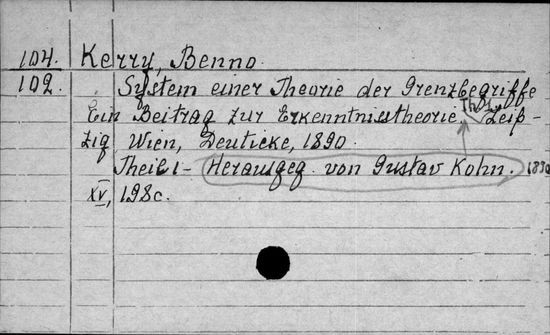 104. Kerry, Benno.
102. System einer Theorie der Grenzbegriffe
Ein Beitrag zur Erkenntnistheorie. Leip-
zig Wien, Deuticke, 1890.
Theil 1 - Herausgeg. von Gustav Kohn. 1890
XV, 198 c.